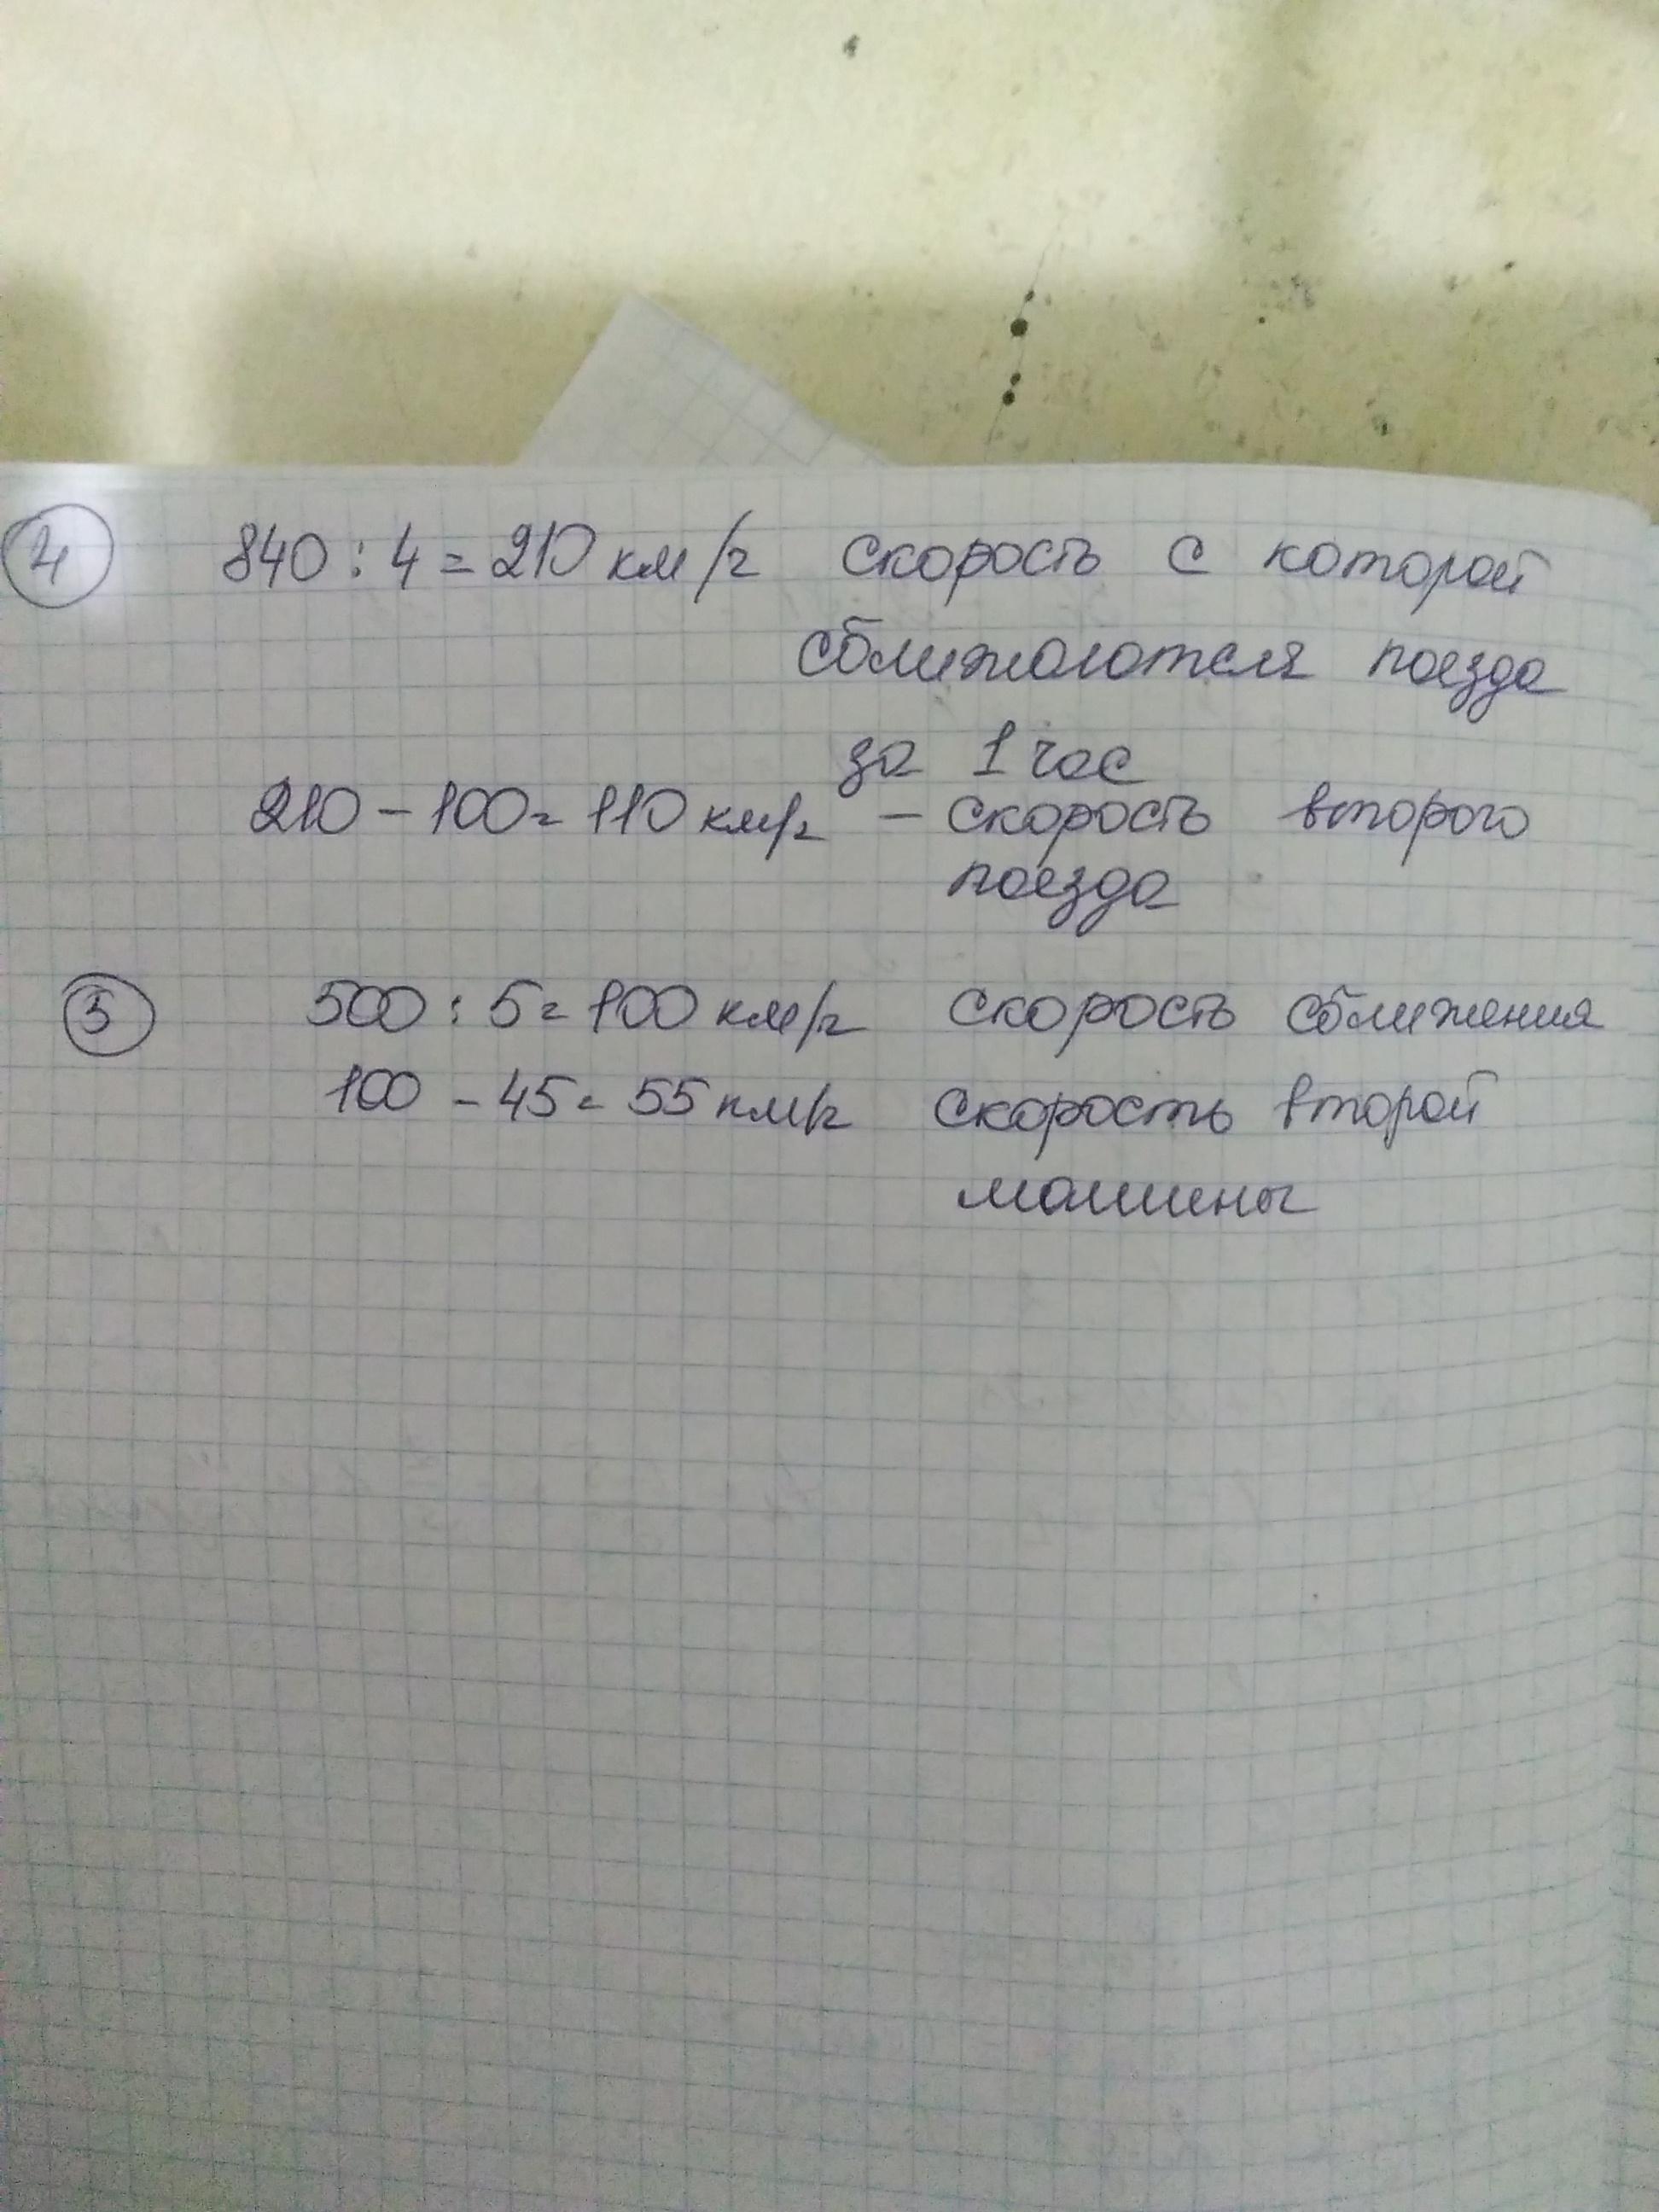 4 840 : 4 = 210 км/г скорость с которой
сближаются поезда
за 1 час
210 - 100 = 110 км/г - скорость второго
поезда
5 500 : 5 = 100 км/г скорость сближения
100 - 45 = 55 км/г скорость второй
машины